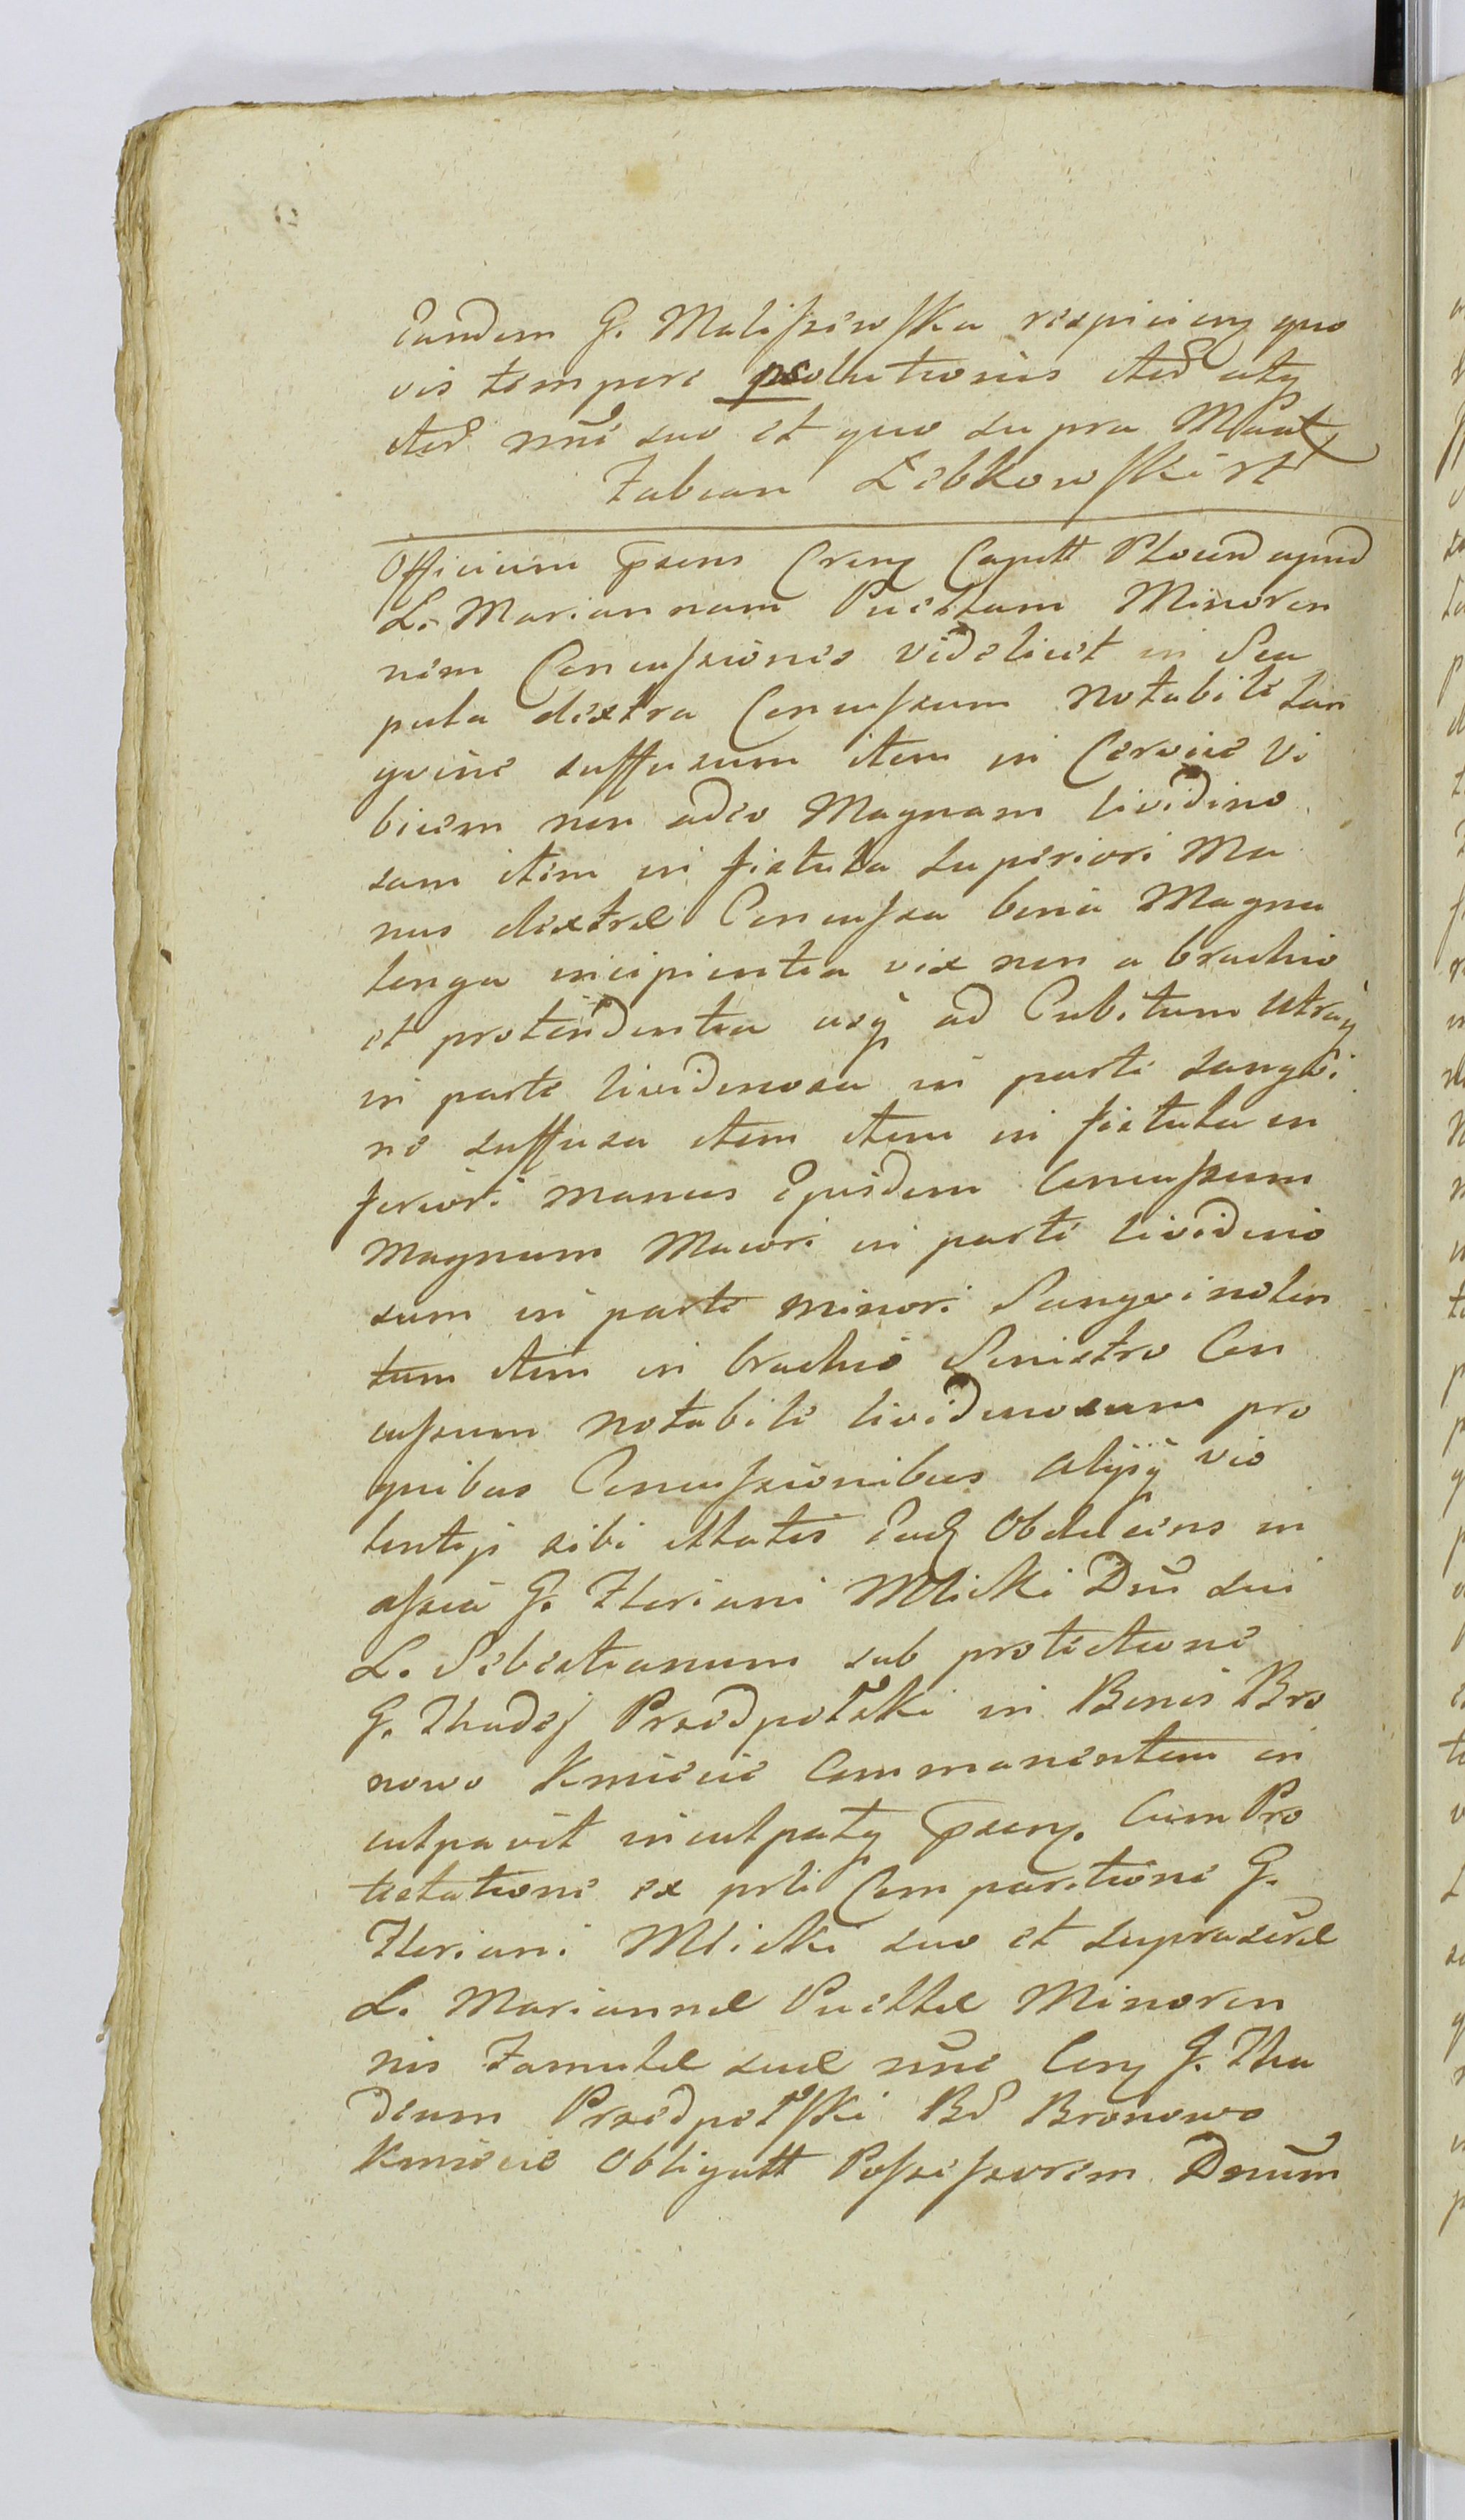 Eandem G. Maliſzewſka respicien quo
vis tempore psolutionis ited atq
ited nne suo et quo supra Mant
Fabian Lebkowſki rt
Officium prsens Cren Capitt Plocen apud
L. Mariannam Puellam Minoren
nem Concuſsiones videlicet in Sca
pula dextra Concuſsum notabile San
gvine suffusum item in Cervice Vi
bicem non adeo Magnam lividino
sam item in fistula Superiori Ma
nus dextræ Concuſsa bina Magna
longa incipientia vix non a brachio
et protendentia usq ad Cubitum utraq
in parte lividinosa in parte sangvi
ne suffusa item item in fistula in
feriori manus Ejusdem Concuſsum
Magnum Maiori in parte lividino
sum in parte minori Sangvinolen
tum item in brachio Sinistro Con
cuſsum notabile lividinosum pro
quibus Concuſsionibus alijsq vio
lentijs sibi illatis Ead Obducens in
aſsia G. Floriani Mlicki Dni sui
L. Sebestianum sub protectione
G. Thadej Przedpełski in Bonis Bro
nowo Kmiecie Commanentem in
culpavit inculpatq prsen. Cum Pro
testatione ex prli Comparitione G.
Floriani Mlicki suo et suprascræ
L. Mariannæ Puellæ Minoren
nis Famulæ suæ nne Con G. Tha
deum Przedpełſki Bd Bronowo
Kmiecie Obligatt Poſseſsorem Dnum